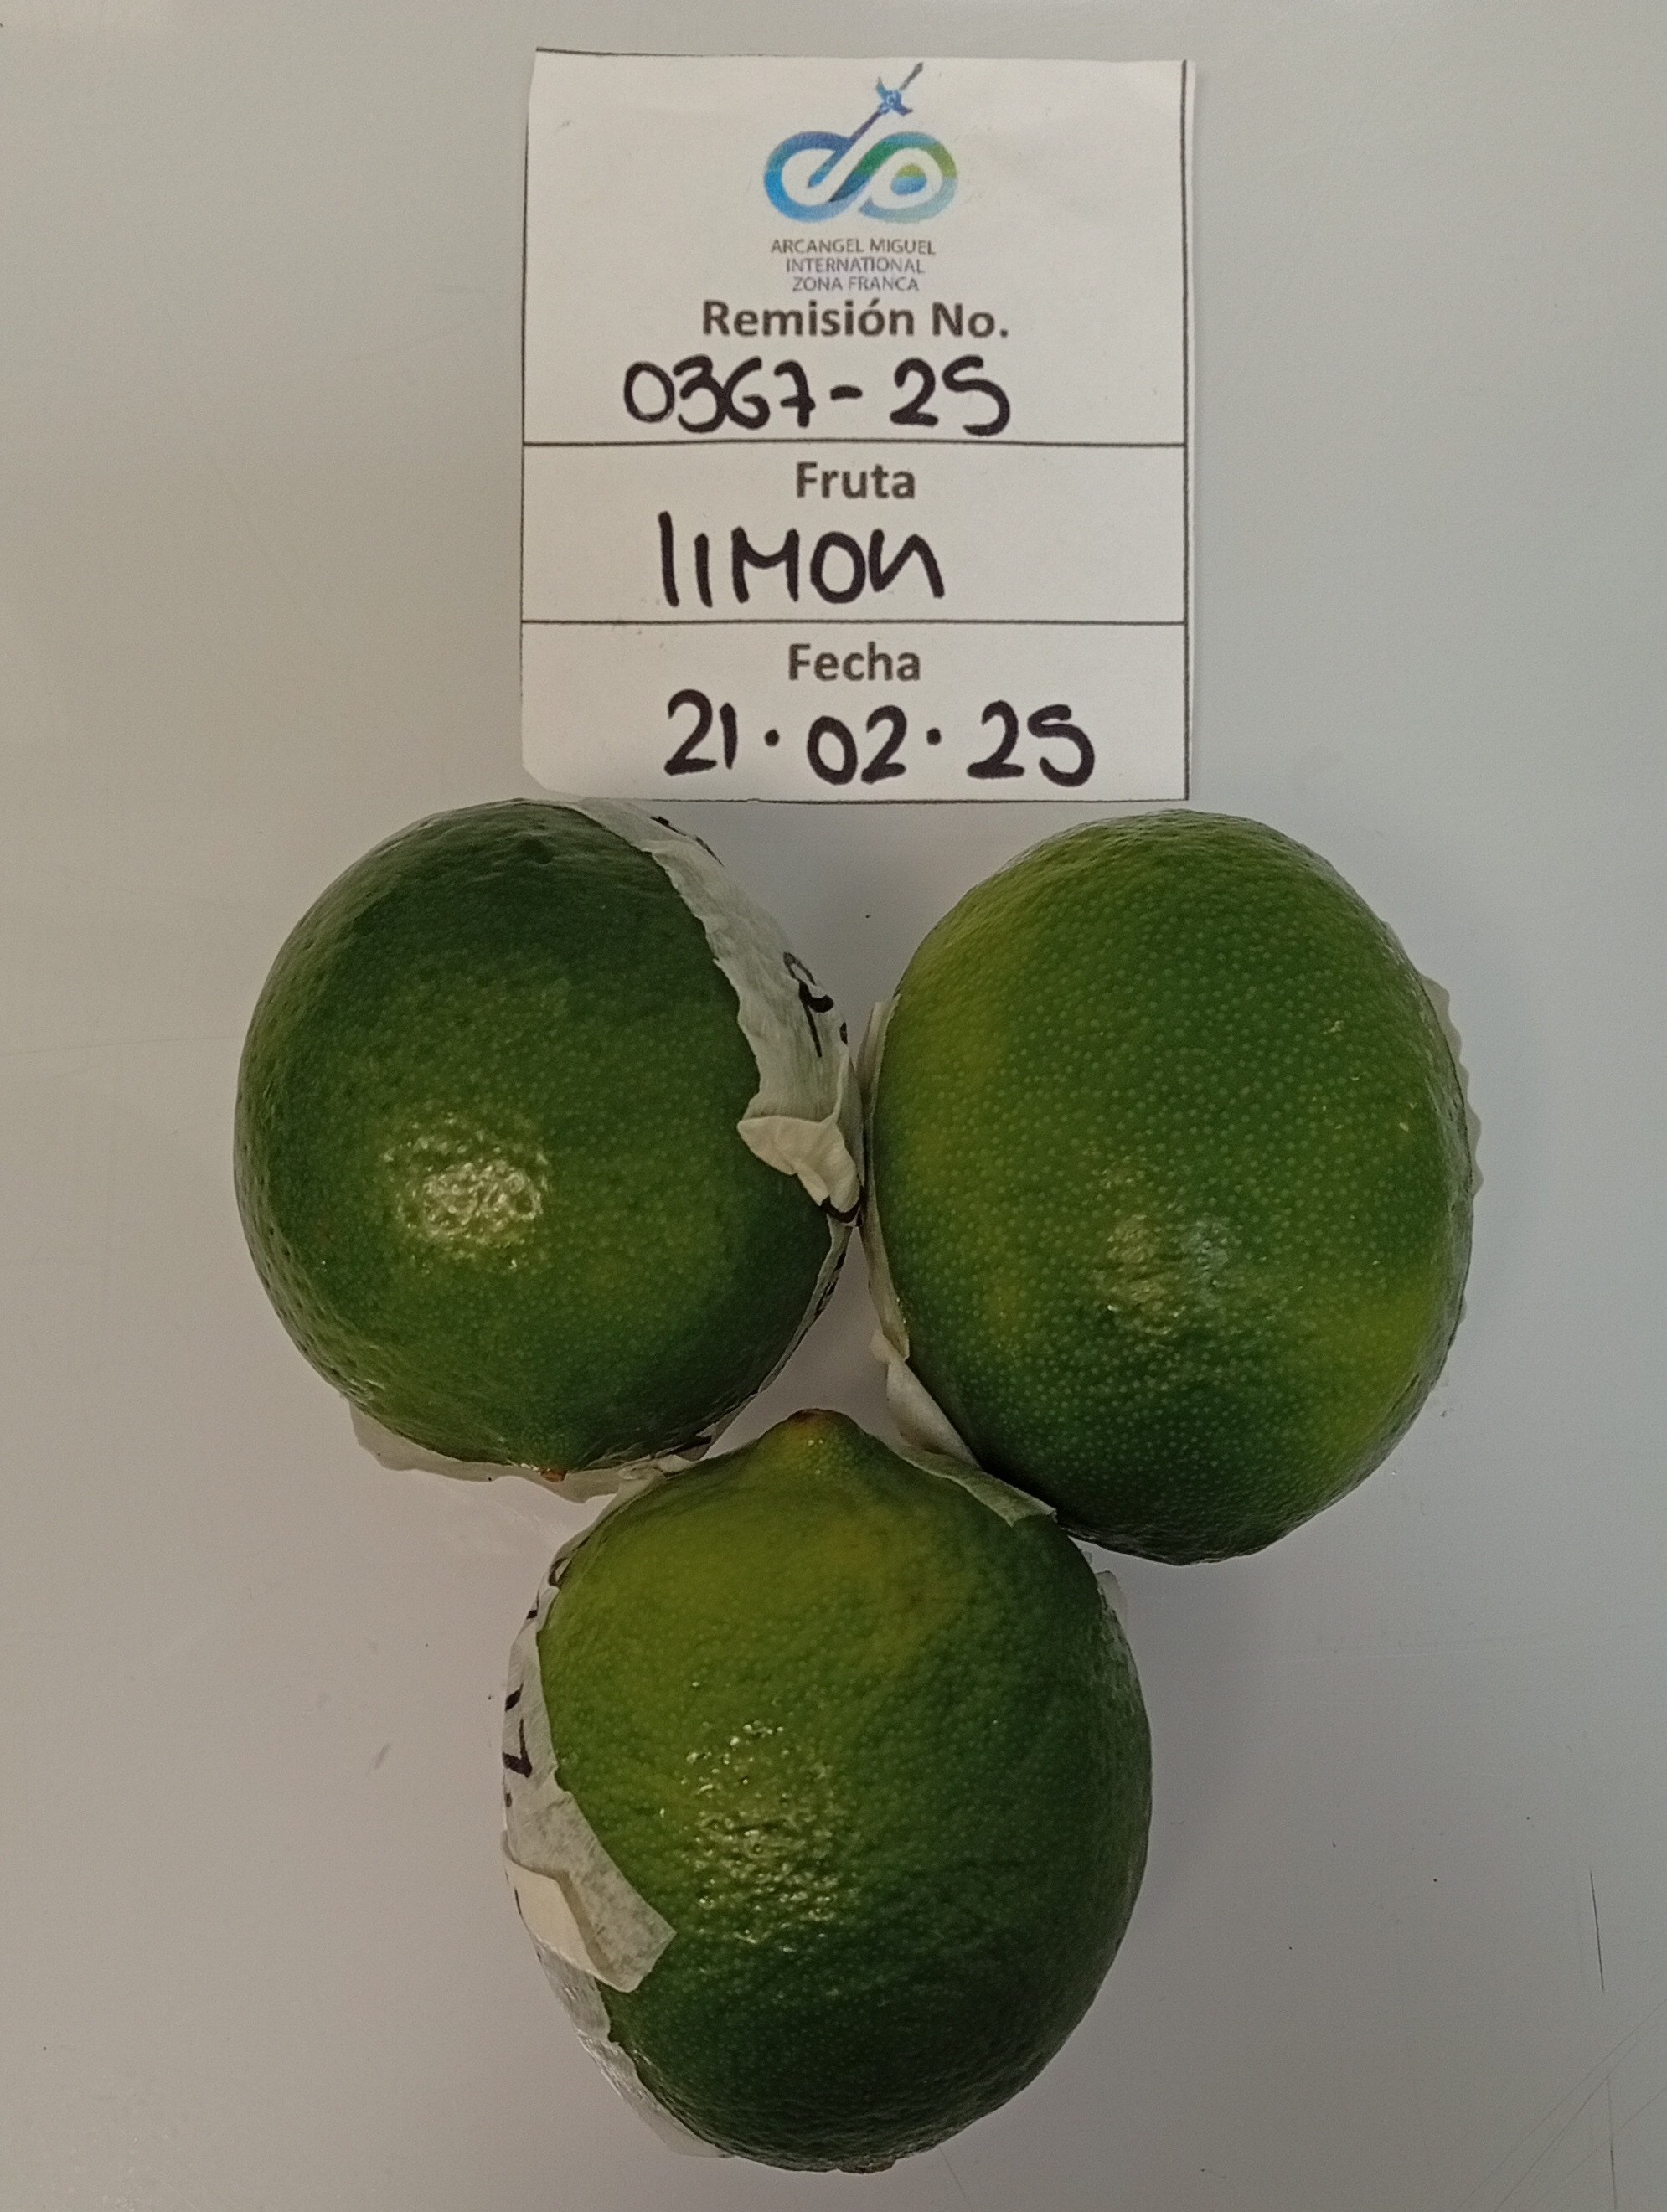 ARCANGEL MIGUEL
INTERNATIONAL
ZONA FRANCA
Remisión No.
0367-25
Fruta
lIMON
Fecha
21·02·25